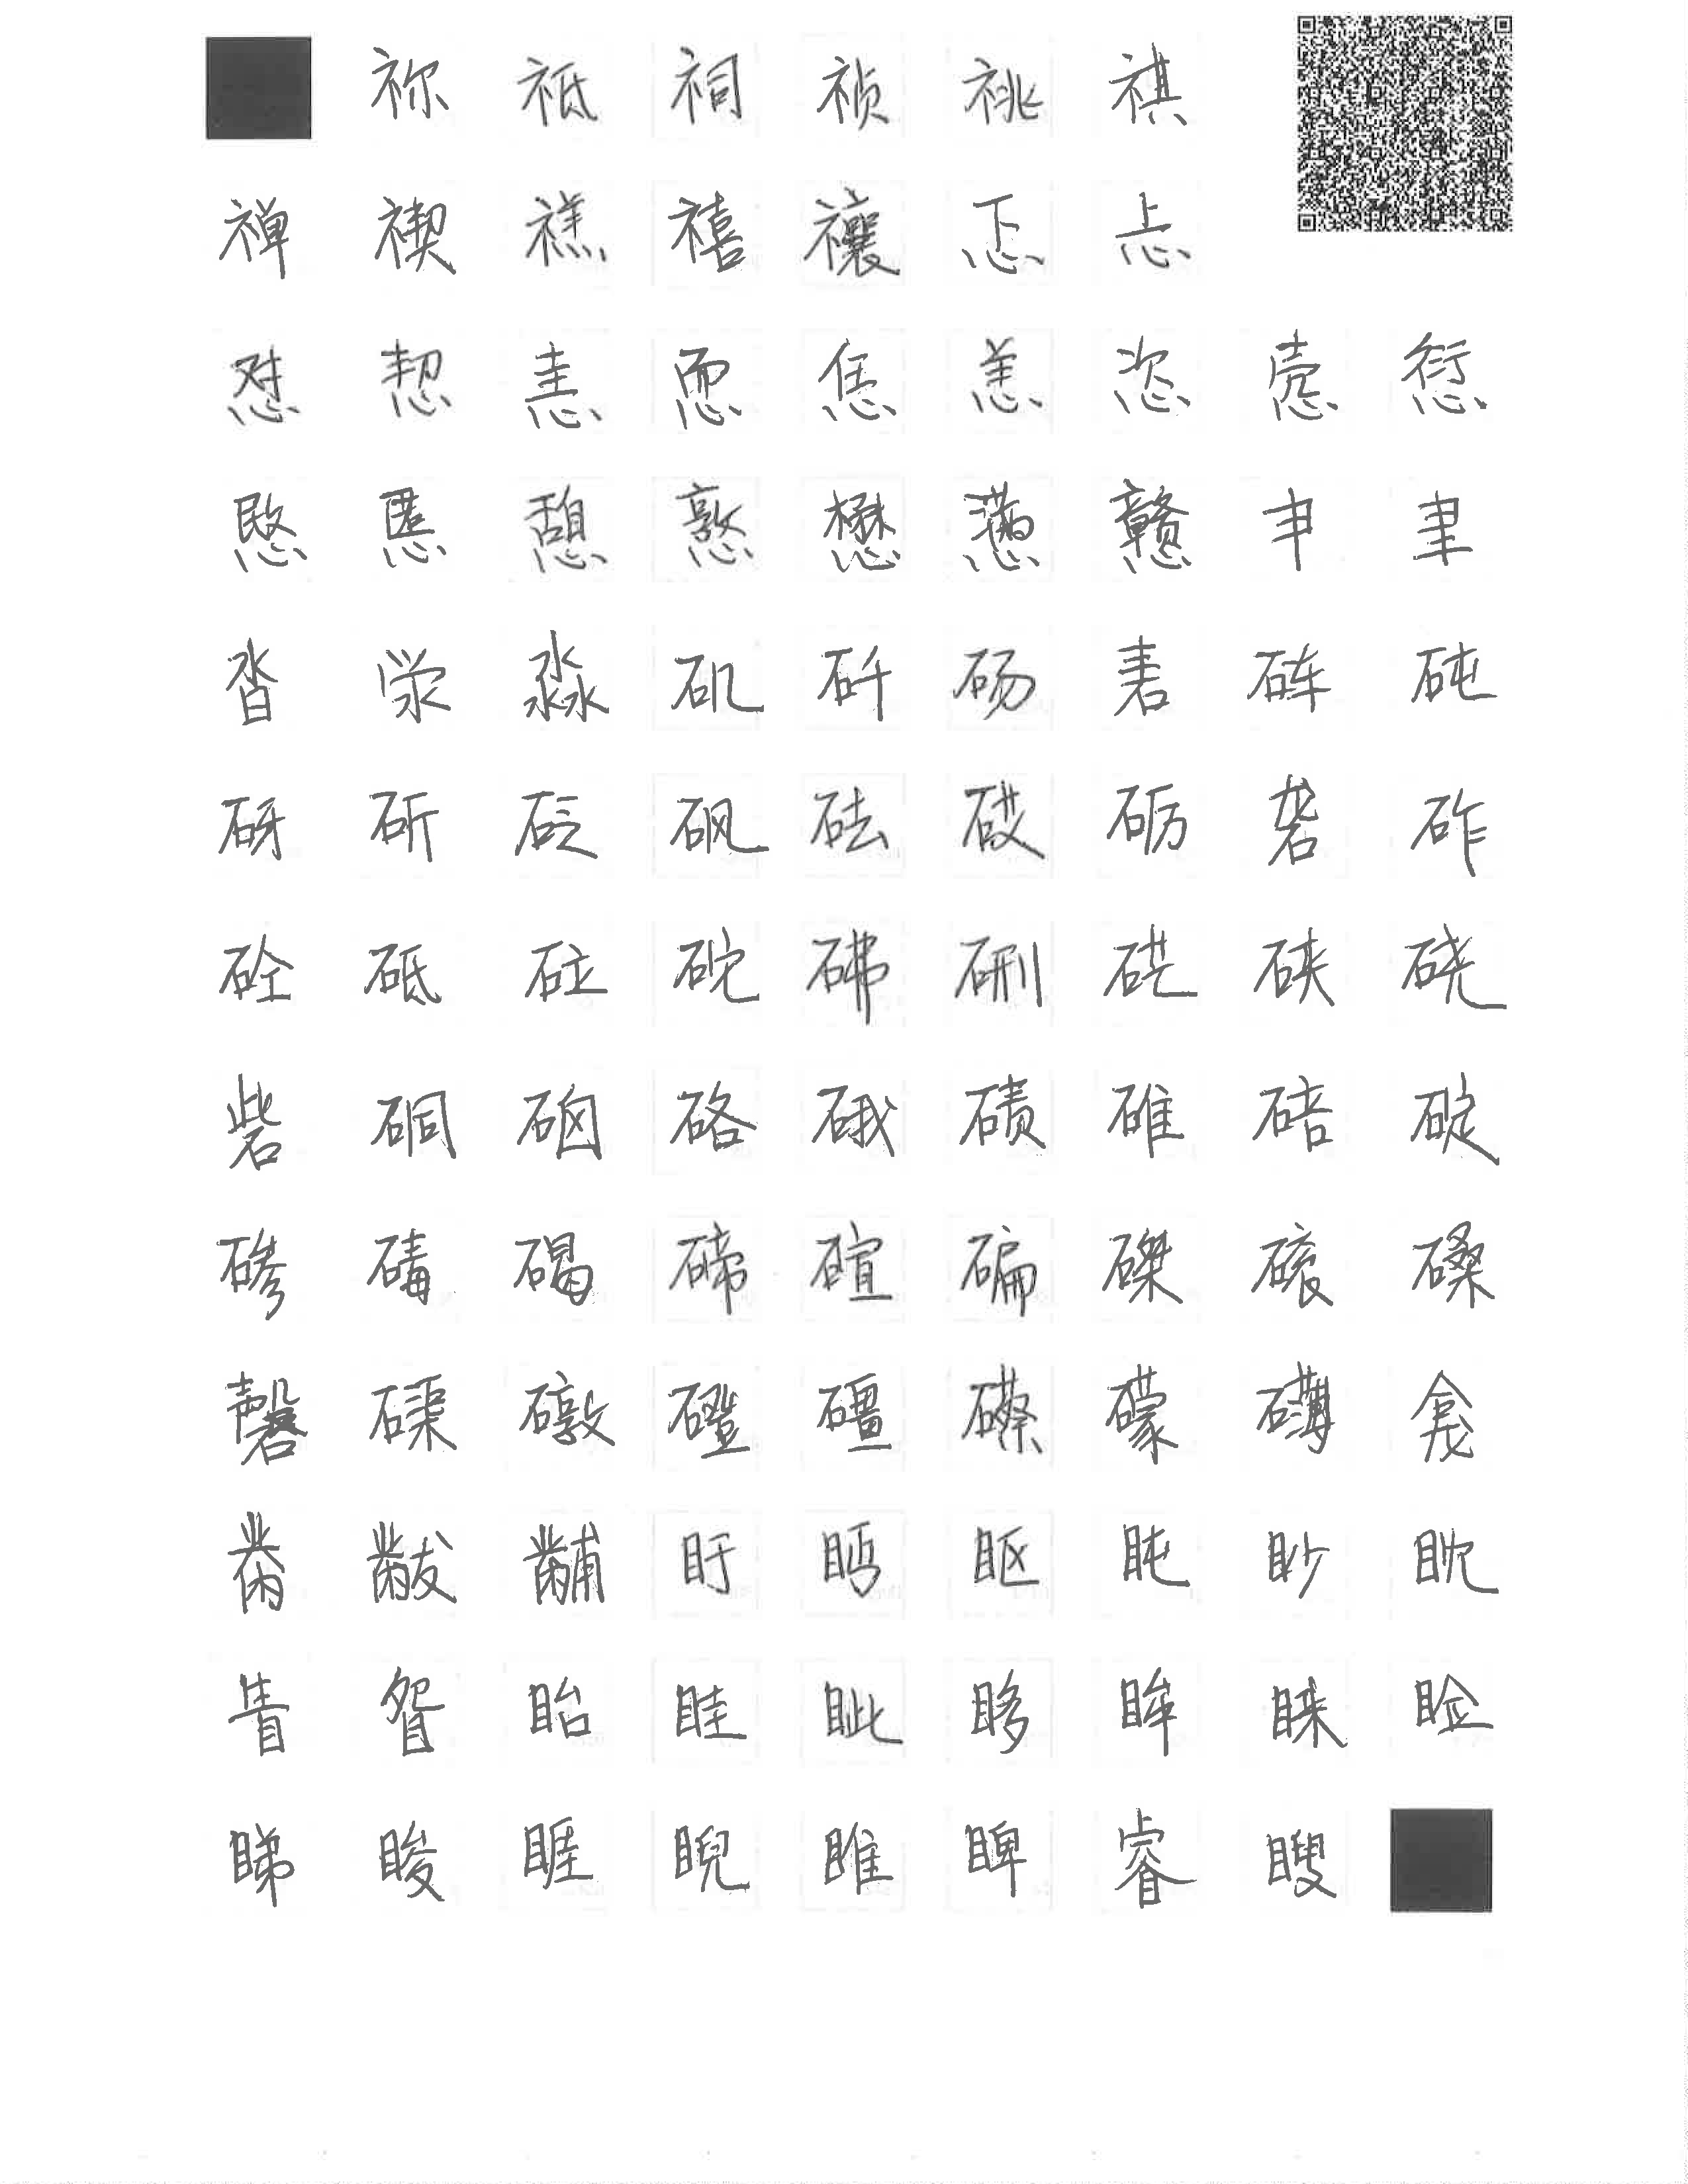 祢祗祠祯祧祺
禅禊禚禧禳忑忐
怼恝恚恧恁恙恣悫愆
愍慝憩憝懋懑戆肀聿
沓泶淼矶矸砀砉砗砘
砑斫砭砜砝砹砺砻砟
砼砥砬砣砩硎硭硖硗
砦硐硇硌硪碛碓碚碇
碜碡碣碲碹碥磔磙磉
磬磲礅磴礓礤礞礴龛
黹黻黼盱眄眍盹眇眈
眚眢眙眭眦眵眸睐睑
睇睃睚睨睢睥睿瞍